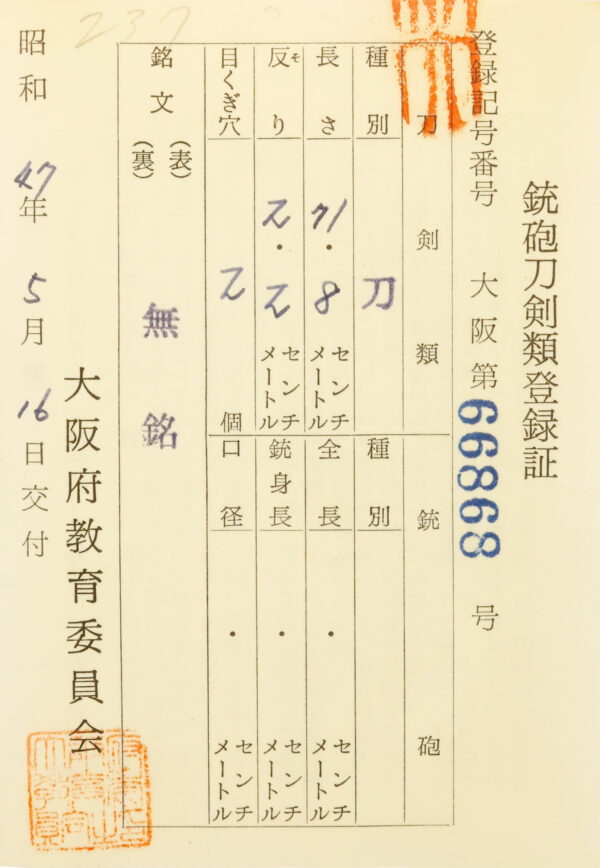 銃砲刀剣類登録証
登録記号番号 大阪第66868号
刀剣類
銃砲
種別 刀
長さ 71.8センチメートル
反り そ 2.2センチメートル
目くぎ穴 2個
種別
全長 ・ センチメートル
銃身長 ・ センチメートル
口径 ・ センチメートル
銘文 (表) (裏) 無銘
大阪府教育委員会
昭和47年5月16日交付
237